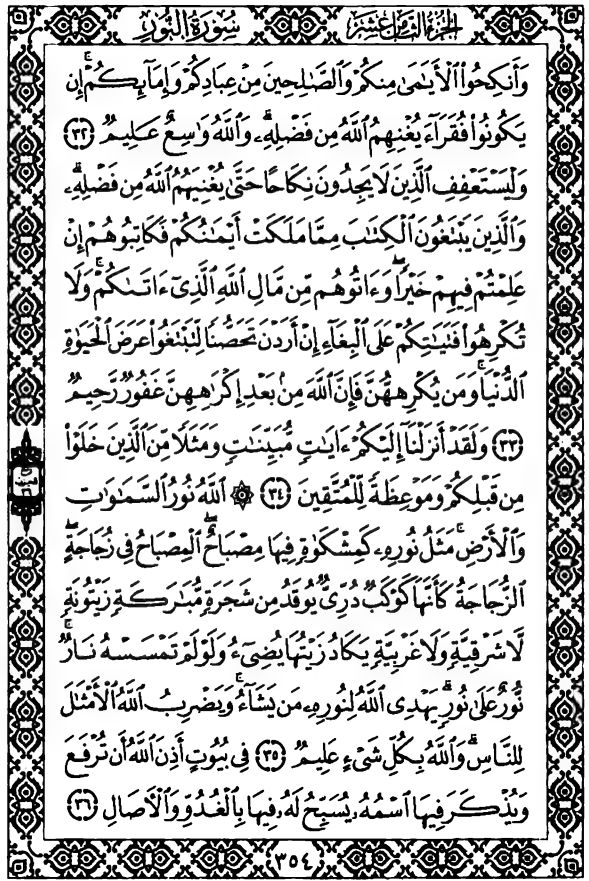 سُورَةُ النُّورِ الجُزءُ الثَّامِنَ عَشَرَ
وَأَنكِحُوا۟ ٱلْأَيَـٰمَىٰ مِنكُمْ وَٱلصَّـٰلِحِينَ مِنْ عِبَادِكُمْ وَإِمَآئِكُمْ ۚ إِن
يَكُونُوا۟ فُقَرَآءَ يُغْنِهِمُ ٱللَّهُ مِن فَضْلِهِۦ ۗ وَٱللَّهُ وَٰسِعٌ عَلِيمٌ ٣٢
وَلْيَسْتَعْفِفِ ٱلَّذِينَ لَا يَجِدُونَ نِكَاحًا حَتَّىٰ يُغْنِيَهُمُ ٱللَّهُ مِن فَضْلِهِۦ ۗ
وَٱلَّذِينَ يَبْتَغُونَ ٱلْكِتَـٰبَ مِمَّا مَلَكَتْ أَيْمَـٰنُكُمْ فَكَاتِبُوهُمْ إِنْ
عَلِمْتُمْ فِيهِمْ خَيْرًا ۖ وَءَاتُوهُم مِّن مَّالِ ٱللَّهِ ٱلَّذِىٓ ءَاتَىٰكُمْ ۚ وَلَا
تُكْرِهُوا۟ فَتَيَـٰتِكُمْ عَلَى ٱلْبِغَآءِ إِنْ أَرَدْنَ تَحَصُّنًا لِّتَبْتَغُوا۟ عَرَضَ ٱلْحَيَوٰةِ
ٱلدُّنْيَا ۚ وَمَن يُكْرِههُّنَّ فَإِنَّ ٱللَّهَ مِنۢ بَعْدِ إِكْرَٰهِهِنَّ غَفُورٌ رَّحِيمٌ
٣٣ وَلَقَدْ أَنزَلْنَآ إِلَيْكُمْ ءَايَـٰتٍ مُّبَيِّنَـٰتٍ وَمَثَلًا مِّنَ ٱلَّذِينَ خَلَوْا۟
مِن قَبْلِكُمْ وَمَوْعِظَةً لِّلْمُتَّقِينَ ٣٤ ۞ ٱللَّهُ نُورُ ٱلسَّمَـٰوَٰتِ
وَٱلْأَرْضِ ۚ مَثَلُ نُورِهِۦ كَمِشْكَوٰةٍ فِيهَا مِصْبَاحٌ ۖ ٱلْمِصْبَاحُ فِى زُجَاجَةٍ ۖ
ٱلزُّجَاجَةُ كَأَنَّهَا كَوْكَبٌ دُرِّىٌّ يُوقَدُ مِن شَجَرَةٍ مُّبَـٰرَكَةٍ زَيْتُونَةٍ
لَّا شَرْقِيَّةٍ وَلَا غَرْبِيَّةٍ يَكَادُ زَيْتُهَا يُضِىٓءُ وَلَوْ لَمْ تَمْسَسْهُ نَارٌ ۚ
نُّورٌ عَلَىٰ نُورٍ ۗ يَهْدِى ٱللَّهُ لِنُورِهِۦ مَن يَشَآءُ ۚ وَيَضْرِبُ ٱللَّهُ ٱلْأَمْثَـٰلَ
لِلنَّاسِ ۗ وَٱللَّهُ بِكُلِّ شَىْءٍ عَلِيمٌ ٣٥ فِى بُيُوتٍ أَذِنَ ٱللَّهُ أَن تُرْفَعَ
وَيُذْكَرَ فِيهَا ٱسْمُهُۥ يُسَبِّحُ لَهُۥ فِيهَا بِٱلْغُدُوِّ وَٱلْـَٔاصَالِ ٣٦
٣٥٤